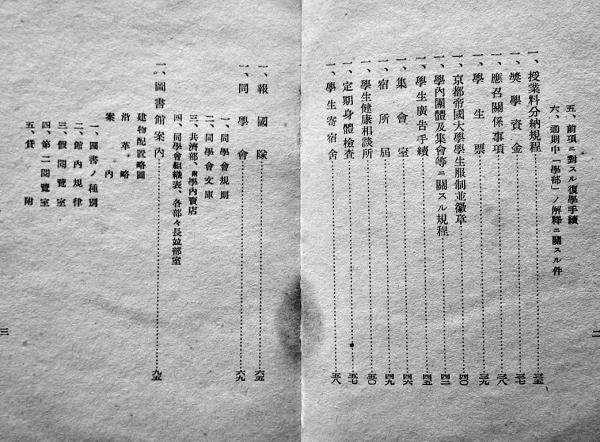 五、前項ニ對スル復學手續
六、通則中「學部」ノ解釋ニ關スル件
一、授業料分納規程
一、奬學資金
一、應召關係事項
一、學生票
一、京都帝國大學學生服制並徽章
一、學內團體及集會等ニ關スル規程
一、學生廣告手續
一、集會室
一、宿所屆
一、學生健康相談所
一、定期身體檢查
一、學生寄宿舍
二
一、報國隊
一、同學會
一、同學會規則
二、同學會文庫
三、共濟部、附學內賣店
四、同學會組織表、各部々長竝部室
一、圖書館案內
建物配置略圖
沿革略
案內
一、圖書ノ種別
二、館內規律
三、假閱覽室
四、第二閱覽室
五、貸附
三